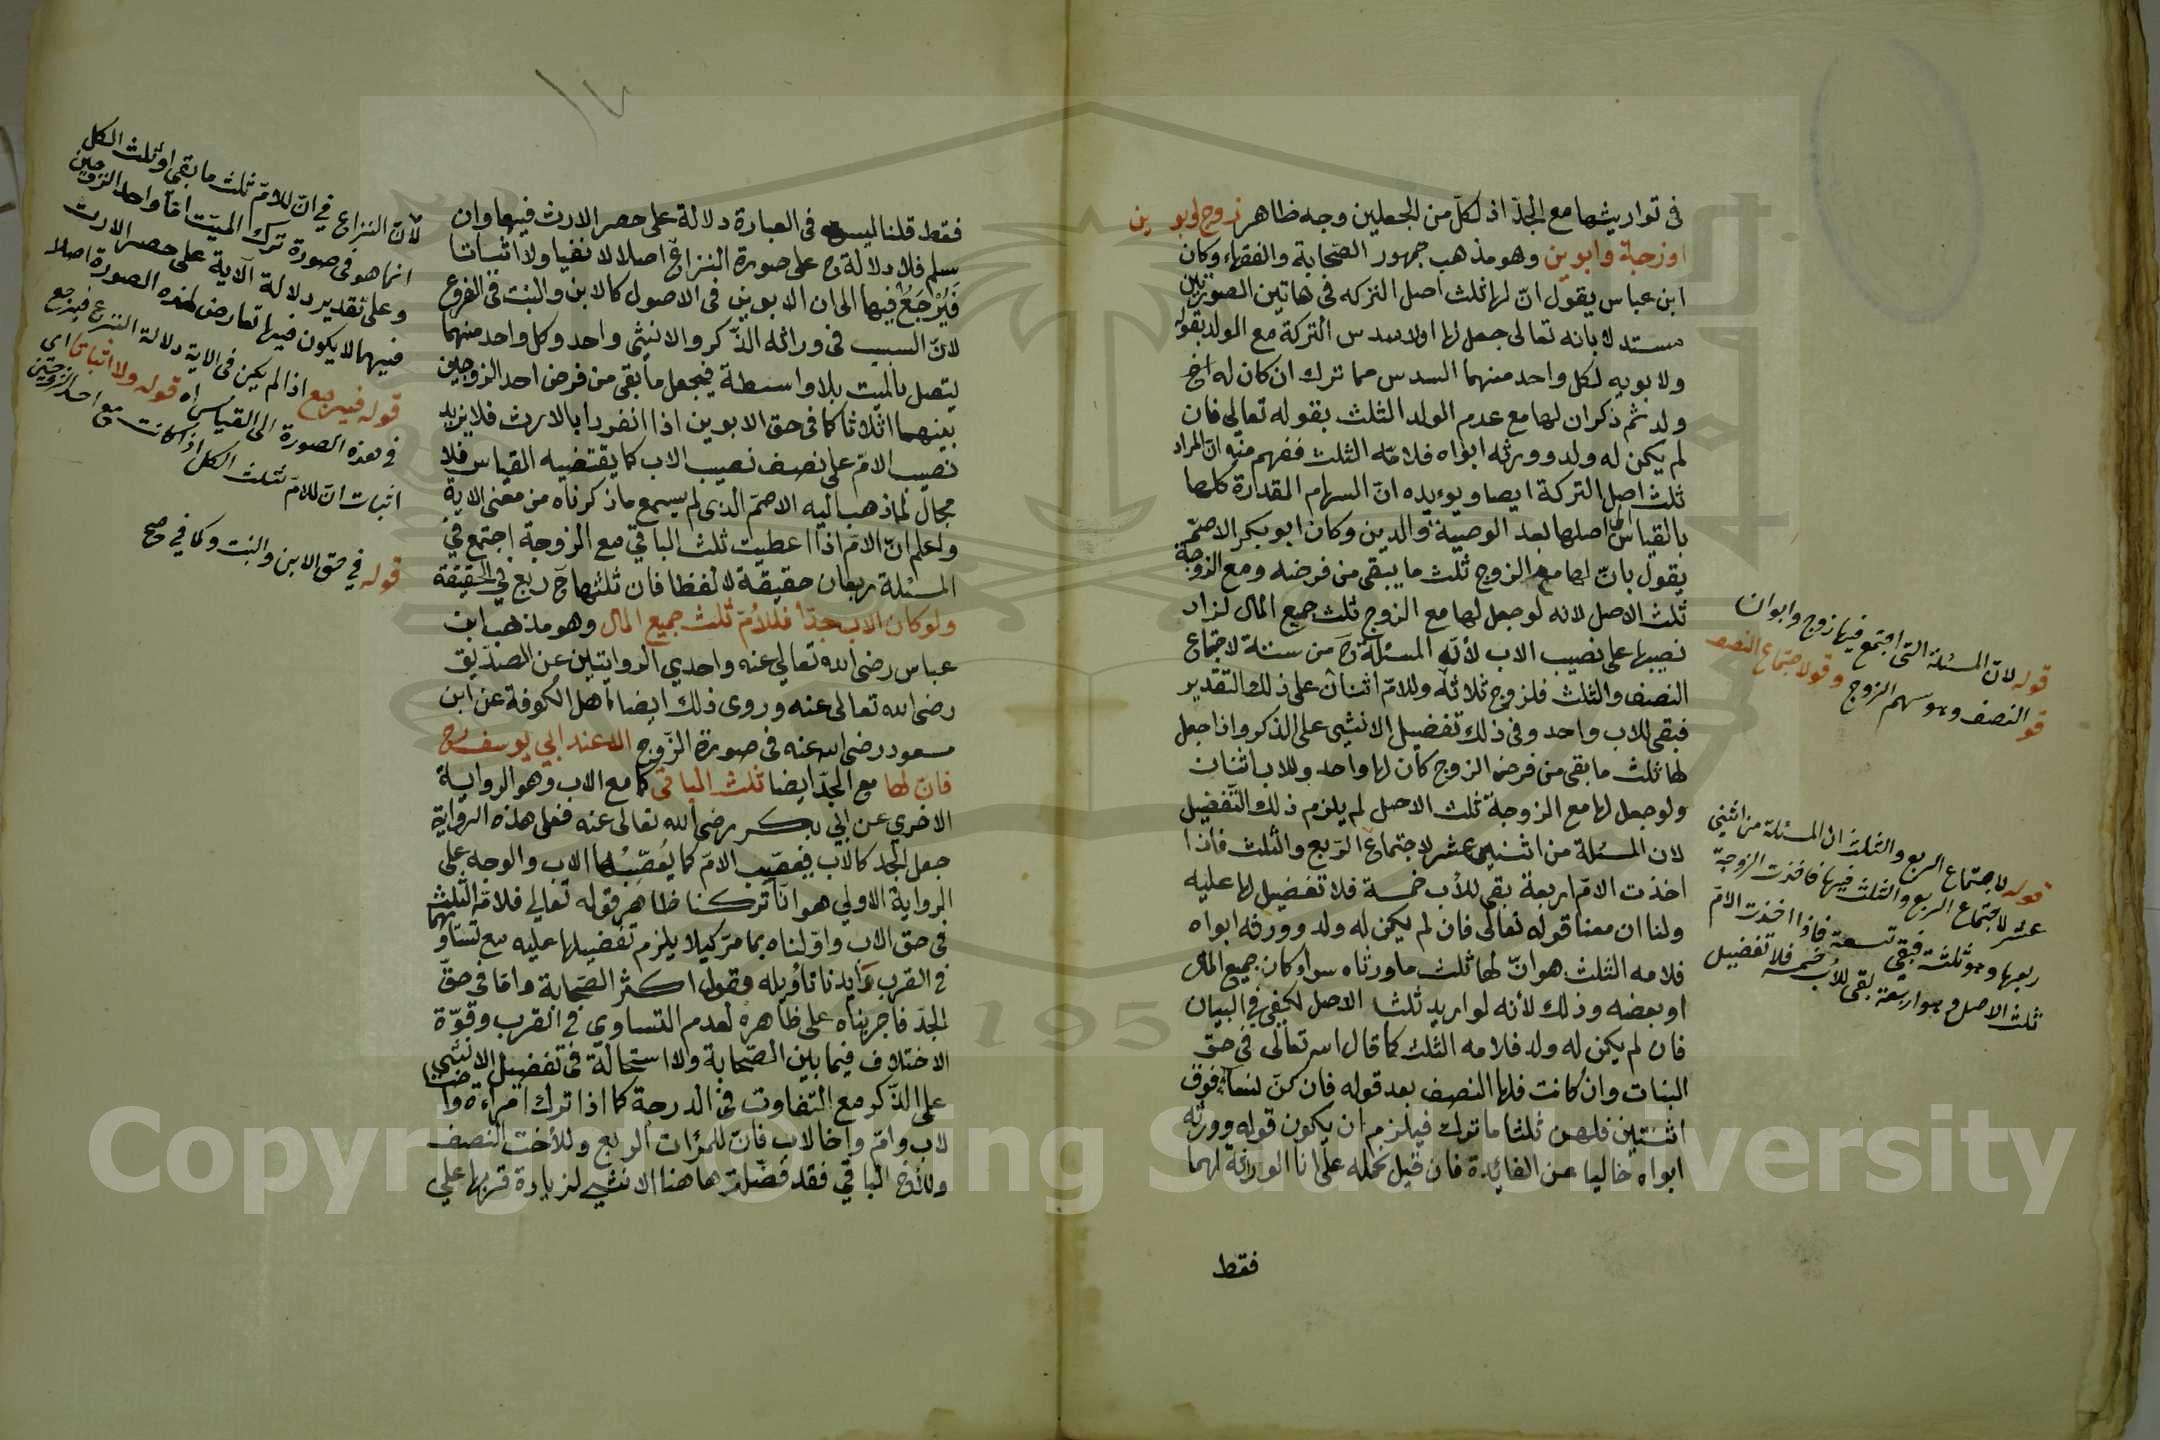 فى توارثيها مع الجدّ اذ لكلّ من الجعلين وجه ظاهر زوج وابوين
او زوجة وابوين وهو مذهب جمهور الصّحابة والفقهاء وكان
ابن عباس يقول انّ لها ثلث اصل التركه فى هاتين الصورتين
مستدلا بانه تعالى جعل لها اولا سدس التركة مع الولد بقوله
ولابويه لكل واحد منهما السدس مما ترك ان كان له
ولد ثم ذكر ان لها مع عدم الولد الثلث بقوله تعالى فان
لم يكن له ولد وورثه ابواه فلامّه الثلث ففهم منه انّ المراد
ثلث اصل التركة ايضا ويؤيده انّ السهام المقدارة كلها
بالقياس الى اصلها بعد الوصية والدين وكان ابو بكر الاصمّ
يقول بانّ لها مع الزوج ثلث ما يبقى من فرضه ومع الزوجة
ثلث الاصل لانه لو جعل لها مع الزوج ثلث جميع المال لزاد
نصيبها على نصيب الاب لأنّه المسئلة ح من ستة لاجتماع
النصف والثلث فلزوج ثلاثة وللامّ اثنان على ذلك التقدير
فبقى للاب واحد وفى ذلك تفضيل الانثى على الذكر واذا جعل
لها ثلث ما بقى من فرض الزوج كان لها واحد وللاب اثنان
ولو جعل لها مع الزوجة ثلث الاصل لم يلزم ذلك التفضيل
لان المسئلة من اثنى عشر لاجتماع الرّبع والثلث فاذا
اخذت الامّ اربعة بقى للأب خمسة فلا تفضيل لها عليه
ولنا ان معنا قوله تعالى فان لم يكن له ولد وورثه ابواه
فلامه الثلث هو انّ لها ثلث ما ورثاه سواء كان جميع المال
او بعضه وذلك لأنه لو اريد ثلث الاصل لكفى فى البيان
فان لم يكن له ولد فلامه الثلث كما قال الله تعالى فى حق
البنات وان كانت فلها النصف بعد قوله فان كنّ نساء فوق
اثنتين فلهن ثلثا ما ترك فيلزم ان يكون قوله وورثه
ابواه خاليا عن الفايدة فان قيل نحمله على انّ الوراثة لهما
فقط
قوله لانّ المسئلة التى اجتمع فيها زوج وابوان
قو النصف وهو سهم الزوج وقو لاجتماع النصف
قوله لاجتماع الربع والثلث ان المسئلة من اثنى
عشر لاجتماع الربع والثلث فيها فاخذت الزوجة
ربعها وهو ثلث فبقى تسعة فاذا اخذت الامّ
ثلث الاصل وهو اربعة بقى للأب خمسة فلا تفضيل
فقط قلنا ليس فى العبارة دلالة على حصر الارث فيهما وان
سلم فلا دلالة ح على صورة النزاع اصلا لا نفيا ولا اثباتا
فيُرجَعُ فيها الى ان الابوين فى الاصول كالابن والبنت فى الفروع
لانّ السبب فى وراثة الذّكر والانثى واحد وكل واحد منهما
يتصل بالميت بلا واسطة فيجعل ما بقى من فرض احد الزوجين
بينهما اثلاثا كما فى حق الابوين اذا انفردا بالارث فلا يزيد
نصيب الامّ على نصف نصيب الاب كما يقتضيه القياس فلا
مجال لما ذهب اليه الاصمّ الذى لم يسمع ما ذكرناه من معنى الاية
واعلم انّ الامّ اذا اعطيت ثلث الباقي مع الزوجة اجتمع في
المسئلة ربعان حقيقة لا لفظا فان ثلثها ح ربع في الحقيقة
ولو كان الاب جدّا فللأمّ ثلث جميع المال وهو مذهب ابن
عباس رضى الله تعالي عنه واحدي الروايتين عن الصدّيق
رضى الله تعالى عنه وروى ذلك ايضا اهل الكوفة عن ابن
مسعود رضى الله عنه فى صورة الزّوج الا عند ابي يوسف رح
فانّ لها مع الجدّ ايضا ثلث الباقى كما مع الاب وهو الرواية
الاخري عن ابي بكر رضى الله تعالى عنه فعلى هذه الرواية
جعل الجد كالاب فيعصّب الامّ كما يُعصّبُها الاب والوجه على
الرواية الاولى هو انّا تركنا ظاهر قوله تعالي فلامّه الثّلث
فى حق الاب واوّلناه بما مرّ كيلا يلزم تفضيلها عليه مع تساويهما
في القرب وايدنا تاويله بقول اكثر الصّحابة وامّا فى حقّ
الجدّ فاجريناه على ظاهره لعدم التساوي في القرب وقوّة
الاختلاف فيما بين الصّحابة ولا استحالة فى تفضيل الانثى
على الذّكر مع التفاوت فى الدرجة كما اذا ترك امراءة واختا
لاب وامّ واخا لاب فانّ للمرأت الربع وللأخت النصف
وللأخ الباقي فقد فضّلت هاهنا الانثى لزيادة قربها على
لأنّ النزاع في انّ للامّ ثلث ما بقى او ثلث الكل
انما هو فى صورة ترك الميّت امّا واحد الزوجين
وعلى تقدير دلالة الآية على حصر الارث
فيهما لا يكون فيها تعارض لهذه الصورة اصلا
قوله فيرجع اذا لم يكن فى الاية دلالة النزاع فيرجع
في هذه الصورة الى القياس اه قوله ولا اثباتا اى
اثبات انّ للامّ ثلث الكل اذا كانت مع احد الزوجين
قوله في حق الابن والبنت وكما في صح
Copyright © King Saud University
195